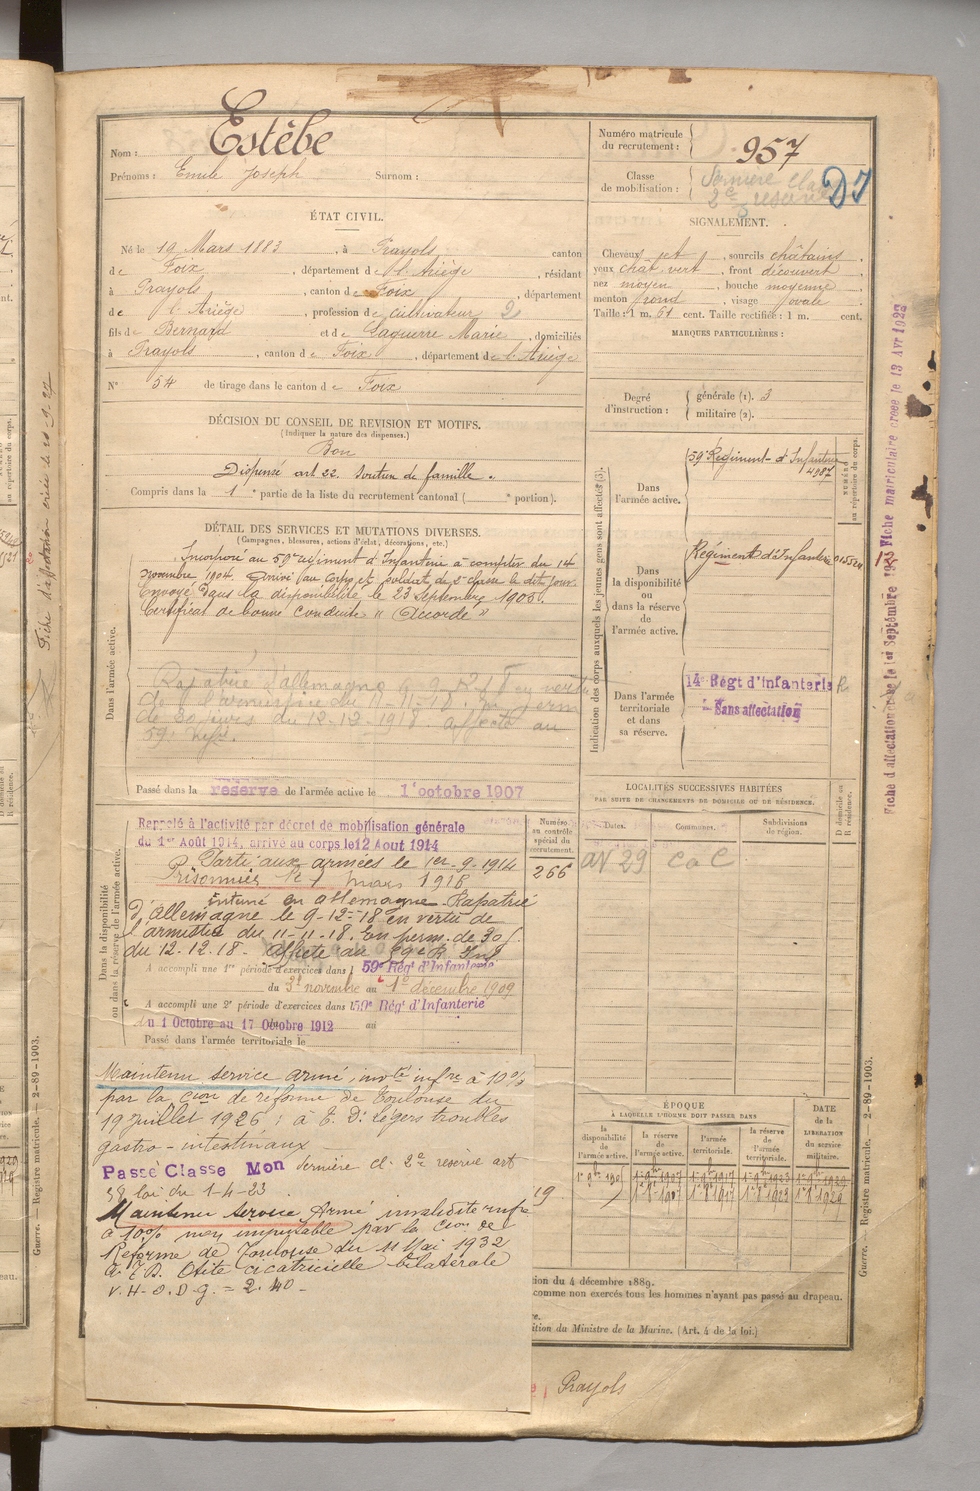 Nom : Estèbe
Prénoms : Emile Joseph Surnom :
Numéro matricule du recrutement : 957
Classe de mobilisation : Dernière Cl
2e réserve
ÉTAT CIVIL.
Né le 19 Mars 1883, à Prayols canton
de Foix, département de l'Ariège, résidant
à Prayols, canton de Foix, département
de l'Ariège, profession de cultivateur 2
fils de Bernard et de Laguerre Marie, domiciliés
à Prayols, canton de Foix, département de l'Ariège
N° 54 de tirage dans le canton de Foix
SIGNALEMENT.
Cheveux jet, sourcils châtains,
yeux chat. vert, front découvert,
nez moyen, bouche moyenne,
menton rond, visage ovale
Taille : 1 m. 61 cent. Taille rectifiée : 1 m. cent.
MARQUES PARTICULIÈRES :
Degré d'instruction : générale (1). 3
militaire (2).
DÉCISION DU CONSEIL DE REVISION ET MOTIFS.
(Indiquer la nature des dispenses.)
Bon
Dispensé art. 22. Soutien de famille.
Compris dans la 1e partie de la liste du recrutement cantonal ( e portion).
DÉTAIL DES SERVICES ET MUTATIONS DIVERSES.
(Campagnes, blessures, actions d'éclat, décorations, etc.)
Dans l'armée active.
Incorporé au 59e régiment d'Infanterie à compter du 14
novembre 1904. Arrivé au corps et soldat de 2e classe le dit jour.
Envoyé dans la disponibilité le 23 Septembre 1905.
Certificat de bonne conduite "Accordé"
Rapatrié d'allemagne le 9-12-18 en vertu
de l'armistice du 11-11-18. En perm
de 30 jours du 12-12-1918 affecté au
59e Inf.
Passé dans la réserve de l'armée active le 1 octobre 1907
Indication des corps auxquels les jeunes gens sont affectés (3).
Dans l'armée active.
59e Régiment d'Infanterie
4987
NUMÉRO au répertoire du corps.
Dans la disponibilité ou dans la réserve de l'armée active.
Régiment d'Infanterie
Dans l'armée territoriale et dans sa réserve.
14e Régt d'Infanterie
Sans affectation
Dans la disponibilité ou dans la réserve de l'armée active.
Rappelé à l'activité par décret de mobilisation générale
du 1er Août 1914, arrivé au corps le 12 Aout 1914
Parti aux armées le 1er-9-1914
Prisonnier le 1 mars 1916
interné en allemagne. Rapatrié
d'Allemagne le 9-12-18 en vertu de
l'armistice du 11-11-18. En perm. de 30 j.
du 12.12.18. Affecté au 59e R. Inf
A accompli une 1re période d'exercices dans l 59e Régt d'Infanterie
du novembre au 1er décembre 1909
A accompli une 2e période d'exercices dans l 59e Régt d'Infanterie
du 1 Octobre au 17 Octobre 1912 au
Passé dans l'armée territoriale le
Numéro au contrôle spécial du recrutement.
266
LOCALITÉS SUCCESSIVES HABITÉES
PAR SUITE DE CHANGEMENTS DE DOMICILE OU DE RÉSIDENCE.
Dates. Communes. Subdivisions de région. D domicile ou R résidence.
av 29 C a C
Maintenu service armé, invté infre à 10%
par la Cion de réforme de Toulouse du
19 juillet 1926 : à T. D. légers troubles
gastro-intestinaux
Passé Classe Mon dernière cl. 2e réserve art
58 loi du 1-4-23
Maintenu service Armé invalidité infre
à 10% non imputable par la Cion de
Réforme de Toulouse du 11 Mai 1932
à. T. D. Otite cicatricielle bilatérale
V.H-O.D.g. = 2.40 -
ÉPOQUE
À LAQUELLE L'HOMME DOIT PASSER DANS
la disponibilité de l'armée active. la réserve de l'armée active. l'armée territoriale. la réserve de l'armée territoriale.
DATE de la LIBÉRATION du service militaire.
19
tion du 4 décembre 1889.
comme non exercés tous les hommes n'ayant pas passé au drapeau.
re.
ition du Ministre de la Marine. (Art. 4 de la loi.)
Prayols
Guerre. — Registre matricule. — 2-89-1903.
Guerre. — Registre matricule. — 2-89-1903.